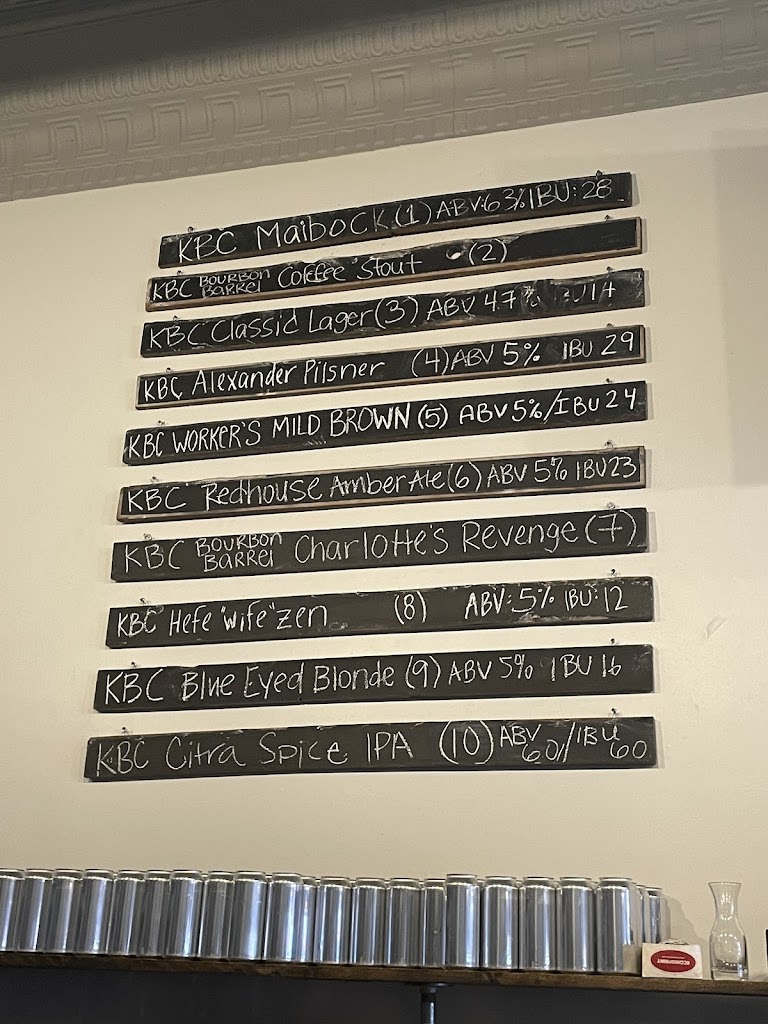 KBC Maibock (1) ABV:6.3% IBU: 28
KBC BOURBON BARREL Coffee Stout (2)
KBC Classic Lager (3) ABV 4.7% IBU 14
KBC Alexander Pilsner (4) ABV 5% IBU 29
KBC WORKER'S MILD BROWN (5) ABV 5%/IBU 24
KBC Redhouse Amber Ale (6) ABV 5% IBU 23
KBC BOURBON BARREL Charlotte's Revenge (7)
KBC Hefe "wife" zen (8) ABV: 5% IBU: 12
KBC Blue Eyed Blonde (9) ABV 5% IBU 16
KBC Citra Spice IPA (10) ABV 6%/IBU 60
ECONOPRINT